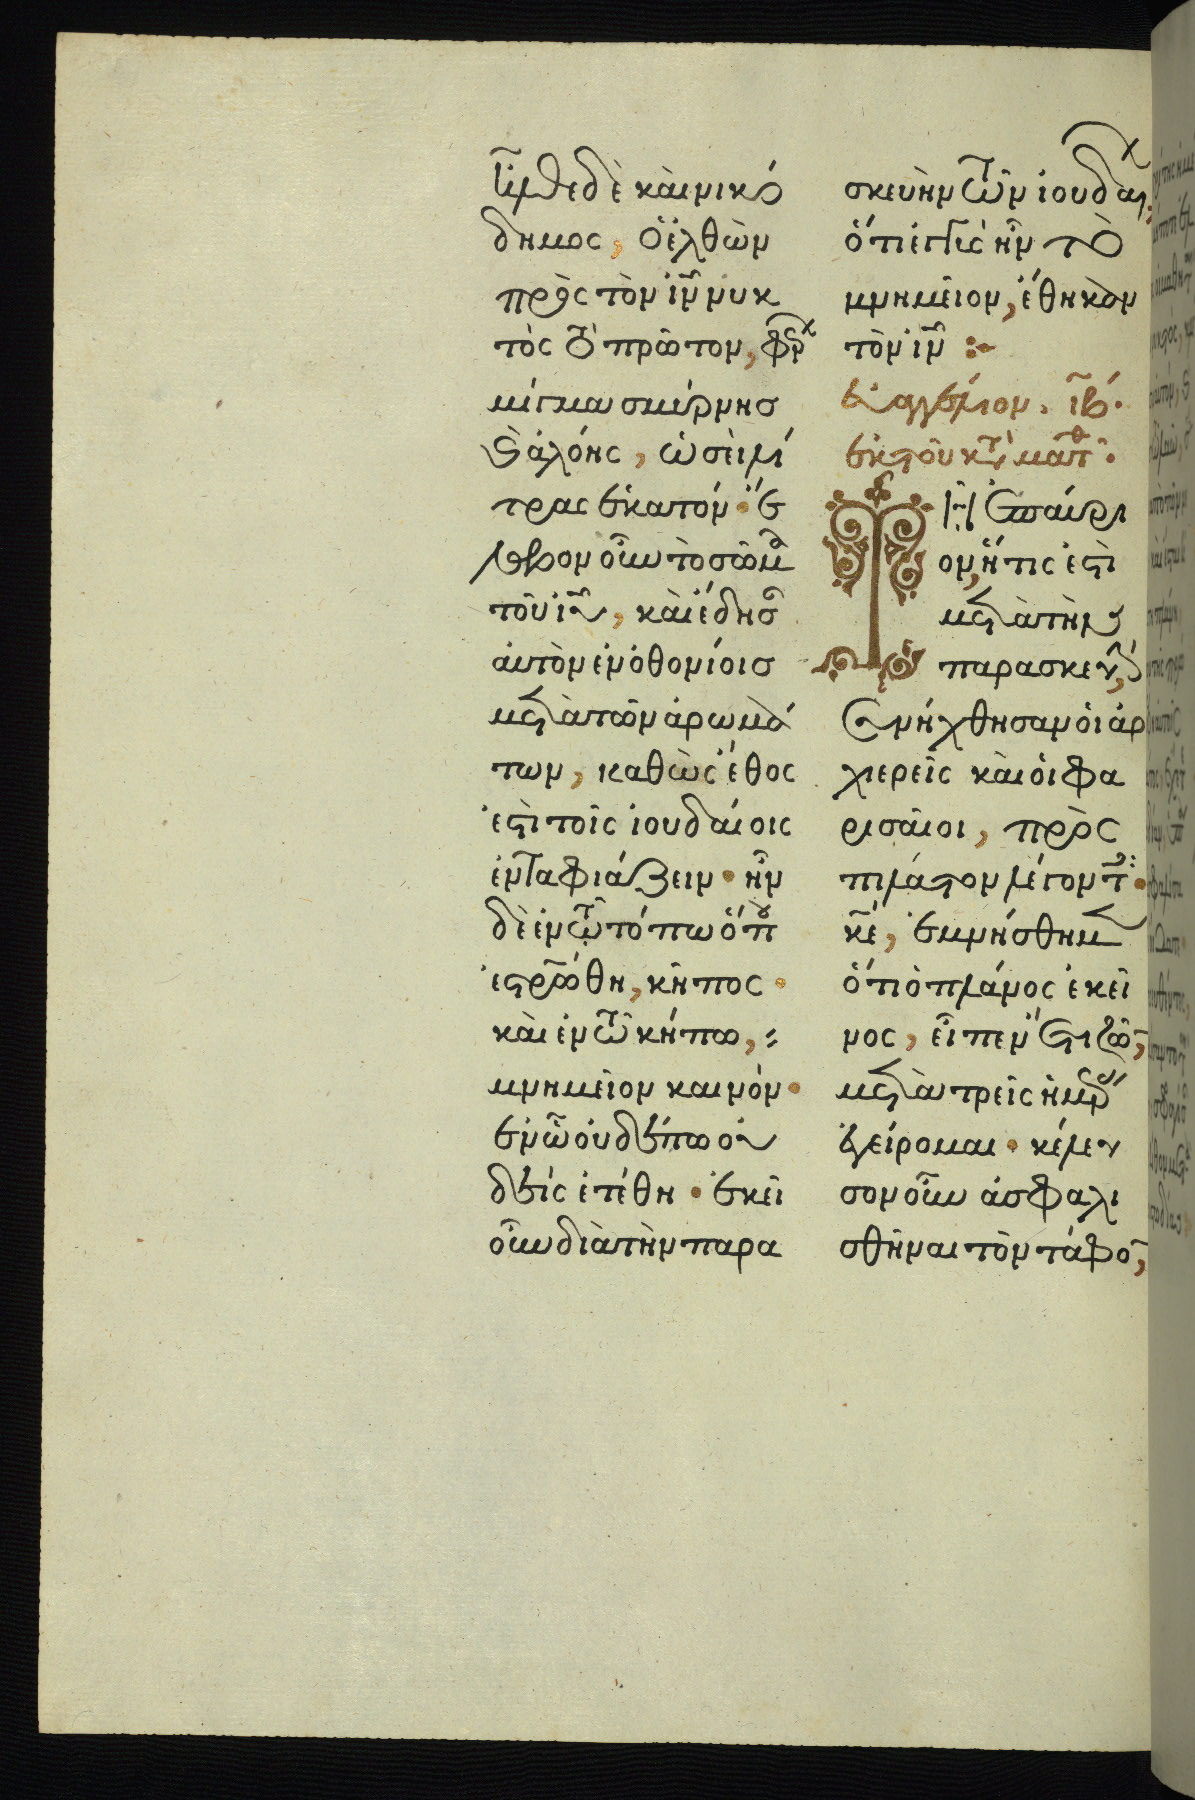 ἦλθε δὲ καὶ νικό
δημος, ὁ ἐλθὼν
πρὸς τὸν ἰν̅ νυκ
τὸς τὸ πρῶτον, φέρν
μίγμα σμύρνησ
καὶ ἀλόης, ὡσεὶ λί
τρας ἑκατόν· ἔ
λαβον οὖν τὸ σῶμα
τοῦ ἰυ̅, καὶ ἔδησαν
αὐτὸν ἐν ὀθονίοισ
μετὰ τῶν ἀρωμά
των, καθὼς ἔθος
ἐστὶ τοῖς ἰουδαίοις
ἐνταφιάζειν· ἦν
δὲ ἐν τῶ τόπω ὅπου
ἐστρώθη, κῆπος·
καὶ ἐν τῶ κήπω,
μνημεῖον καινόν·
ἐν ὧ οὐδέπω οὐ
δεὶς ἐτέθη· ἐκεῖ
οὖν διὰ τὴν παρα
σκευὴν τῶν ἰουδαί,
ὅτι ἐγγὺς ἦν τὸ
μνημεῖον, ἔθηκαν
τὸν ἰν̅ :~
εὐαγγέλιον. ιβ̅.
ἐκ τοῦ κτ̅ ματθ.
Τῆ ἐπαύρι
ον, ἥτις ἐστὶ
μετὰ τὴν
παρασκευ,
συνήχθησαν οἱ ἀρ
χιερεῖς καὶ οἱ φα
ρισαῖοι, πρὸς
πιλάτον λέγοντ·
κε̅, ἐμνήσθημ
ὅτι ὁ πλάνος ἐκεῖ
νος, εἶπεν ἔτι ζῶ,
μετὰ τρεῖς ἡμέρ
ἐγείρομαι· κέλευ
σον οὖν ἀσφαλι
σθῆναι τὸν τάφο,